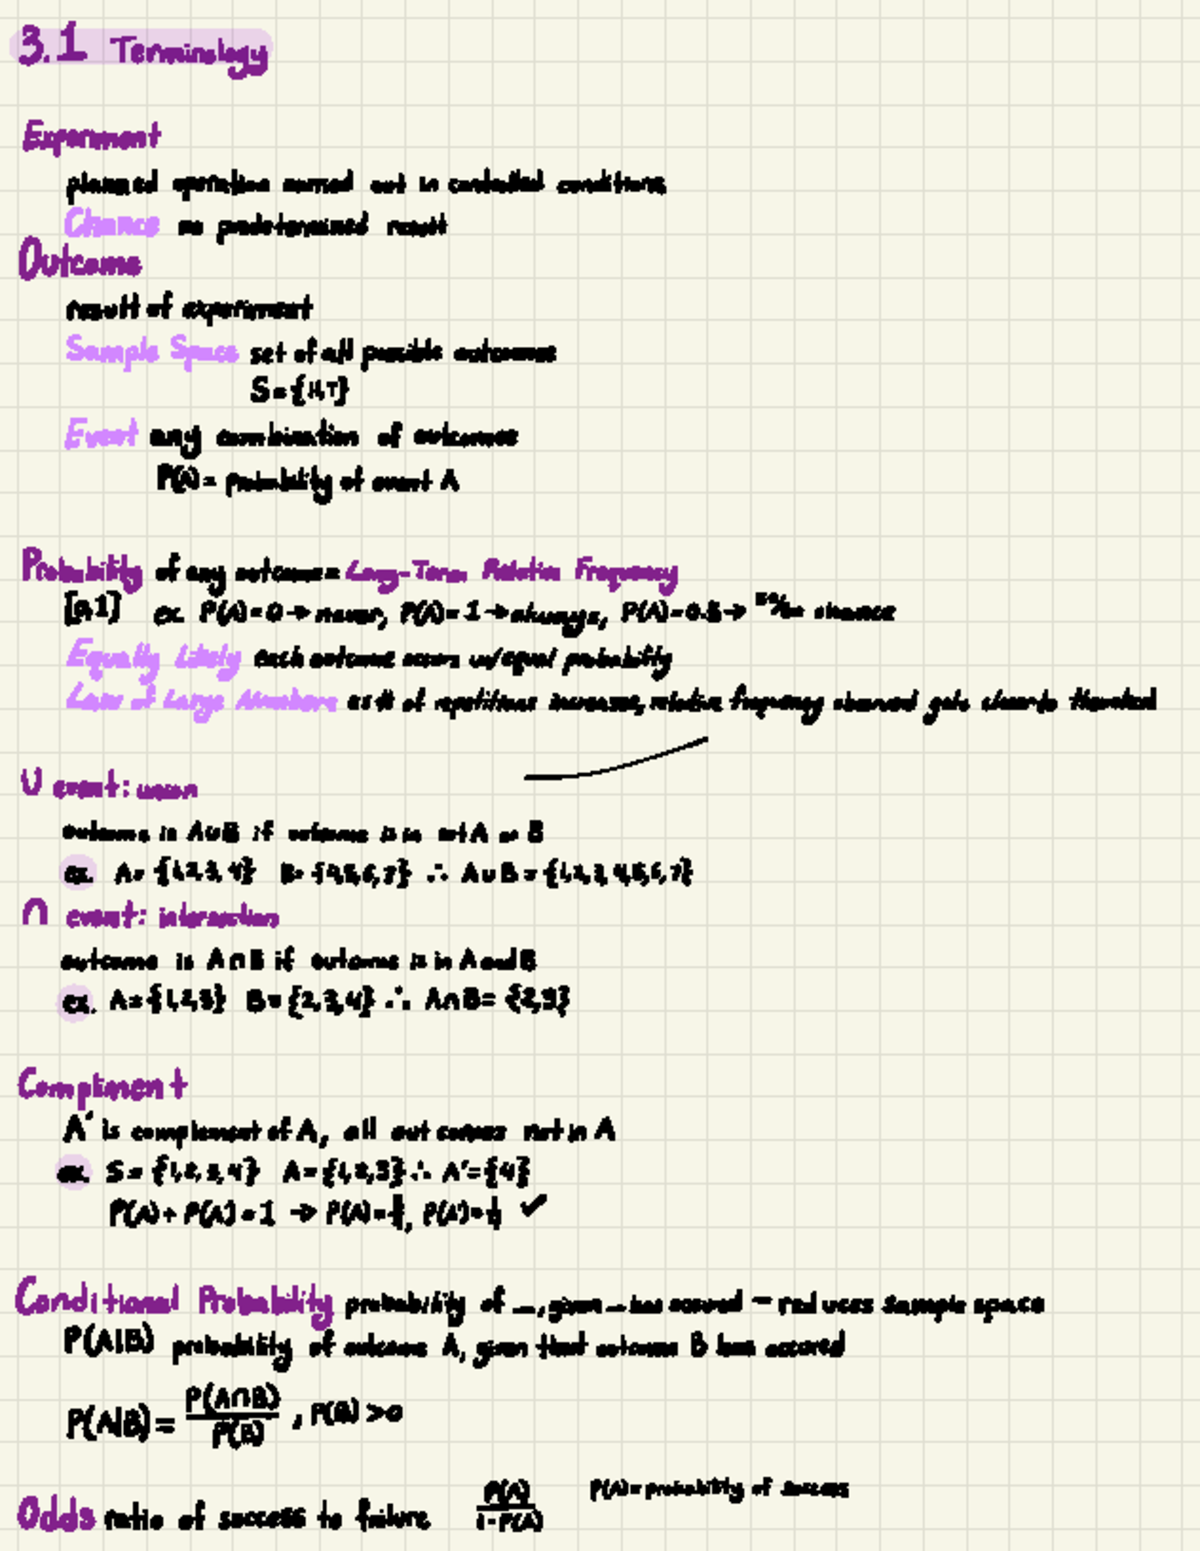 3.1 Terminology
Experiment
planned operation carried out in controlled conditions
Chance no predetermined result
Outcome
result of experiment
Sample Space set of all possible outcomes
S = {H,T}
Event any combination of outcomes
P(A) = probability of event A
Probability of any outcome = Long-Term Relative Frequency
[0,1] ex. P(A)=0 → never, P(A)=1 → always, P(A)=0.5 → 50% chance
Equally Likely each outcome occurs w/equal probability
Law of Large Numbers as # of repetitions increases, relative frequency observed gets closer to theoretical
U event: union
outcome is A∪B if outcome is in A or B
ex. A= {1,2,3,4} B= {4,5,6,7} ∴ A∪B = {1,2,3,4,5,6,7}
∩ event: intersection
outcome is A∩B if outcome is in A and B
ex. A={1,2,3} B={2,3,4} ∴ A∩B= {2,3}
Compliment
A' is complement of A, all outcomes not in A
ex. S= {1,2,3,4} A={1,2,3} ∴ A'={4}
P(A)+ P(A')=1 → P(A)=, P(A')= ✓
Conditional Probability probability of _, given _ has occured - reduces sample space
P(A|B) probability of outcome A, given that outcome B has occured
P(A|B) = P(A∩B)/P(B), P(B) >0
Odds ratio of success to failure P(A)/1-P(A) P(A)= probability of success